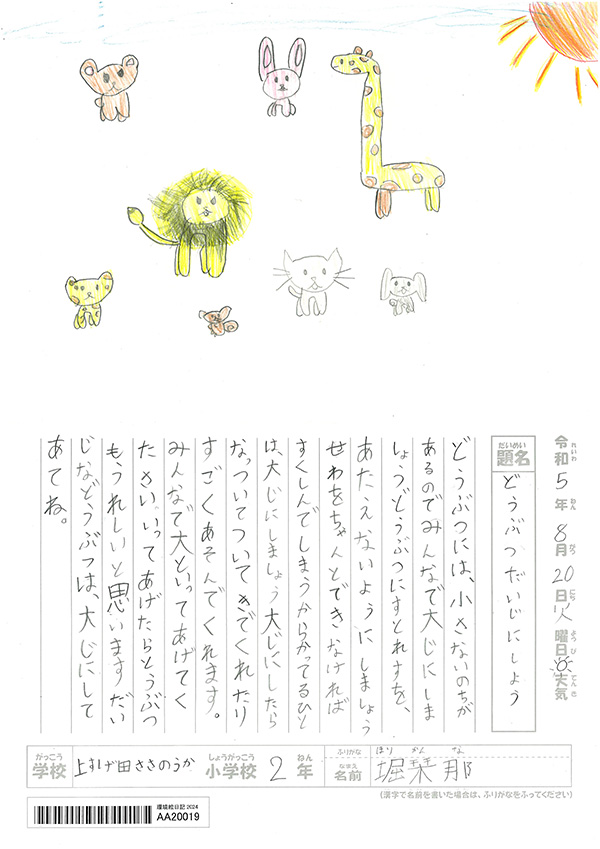 令和5年8月20日火曜日天気
れいわ ねん がつ にち ようび てんき
だいめい
題名
どうぶつだいじにしよう
どうぶつには、小さないのちが
あるのでみんなで大じにしま
しょうどうぶつにすとれすを、
あたえないようにしましょう
せわをちゃんとできなければ
すぐしんでしまうからかってるひと
は、大じにしましょう大じにしたら
なっついてついてきてくれたり
すごくあそんでくれます。
みんなで大といってあげてく
たさいいってあげたらとうぶつ
もうれしいと思いますだい
じなどうぶつは、大じにして
あてね。
がっこう しょうがっこう ねん
学校 上すげ田ささのうか 小学校 2年
ふりがな ほり かん な
なまえ
名前 堀栞那
(漢字で名前を書いた場合は、ふりがなをふってください)
環境絵日記2024
AA20019